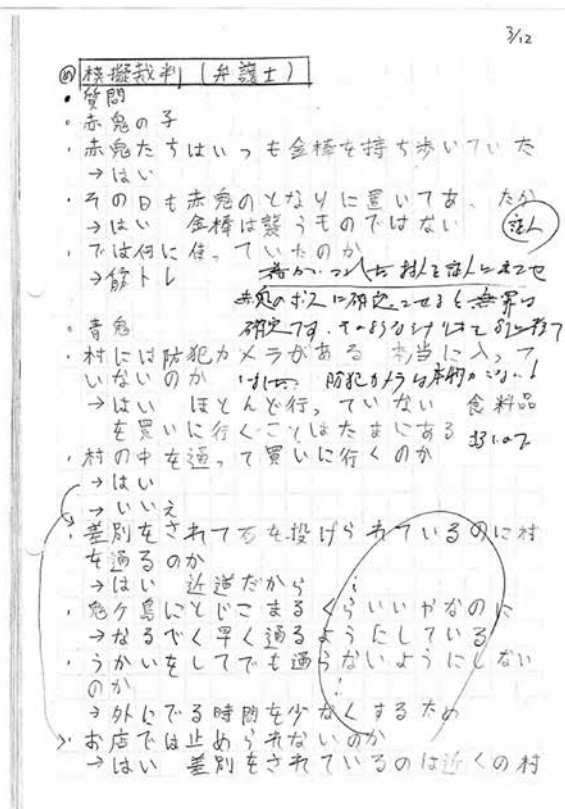 3/12
模擬裁判（弁護士）
・質問
・赤鬼の子
・赤鬼たちはいつも金棒を持ち歩いていた
→はい
・その日も赤鬼のとなりに置いてあったか
→はい 金棒は襲うものではない
証人
・では何に使っていたのか
→筋トレ
・青鬼
・村には防犯カメラがある 本当に入って
いないのか
防犯カメラは
→はい ほとんど行っていない 食料品
を買いに行くことはたまにある
・村の中を通って買いに行くのか
→はい
→いいえ
・差別をされて石を投げられているのに村
を通るのか
→はい 近道だから
・鬼ヶ島にとじこまるくらいいやなのに
→なるべく早く通るようにしている
・うかいをしてでも通らないようにしない
のか
→外にでる時間を少なくするため
お店では止められないのか
→はい 差別をされているのは近くの村